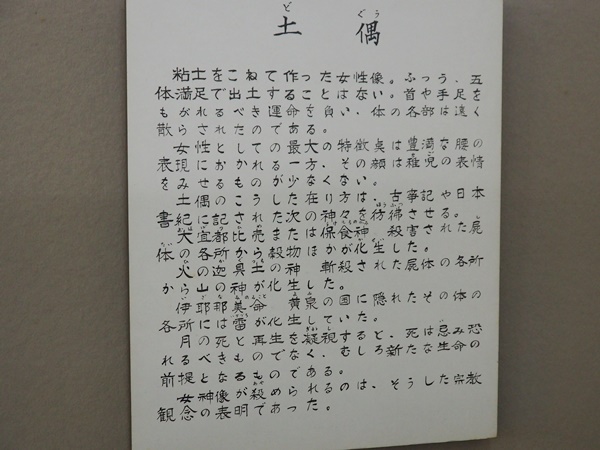 土偶
粘土をこねて作った女性像。ふつう、五
体満足で出土することはない。首や手足を
もがれるべき運命を負い、体の各部は遠く
散らされたのである。
女性としての最大の特徴点は豊満な腰の
表現におかれる一方、その顔は稚児の表情
をみせるものが少なくない。
土偶のこうした在り方は、古事記や日本
書紀に記された次の神々を彷彿させる。
大宜都比売または保食神 殺害された屍
体の各所から穀物ほかが化生した。
火の迦具土の神 斬殺された屍体の各所
から山の神が化生した。
伊耶那美命 黄泉の国に隠れたその体の
各所には雷が化生していた。
月の死と再生を凝視すると、死は忌み恐
れるべきものでなく、むしろ新たな生命の
前提となるものである。
女神像が殺められるのは、そうした宗教
観念の表明であった。